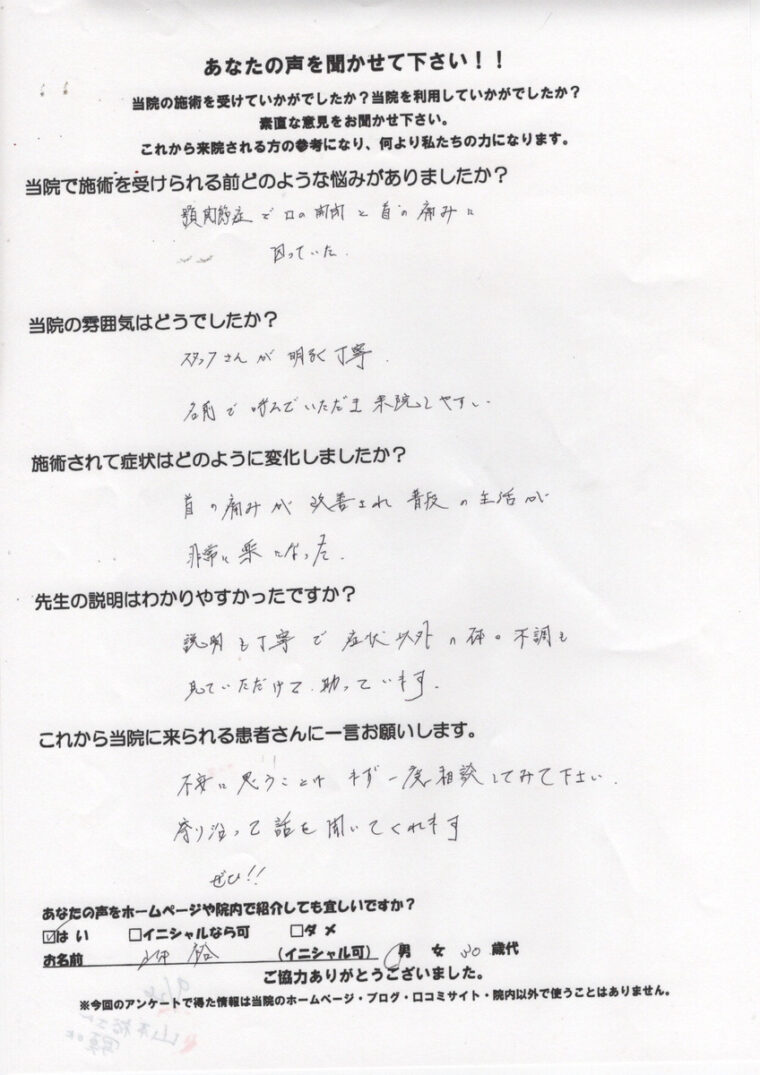 あなたの声を聞かせて下さい！！
当院の施術を受けていかがでしたか？当院を利用していかがでしたか？
素直な意見をお聞かせ下さい。
これから来院される方の参考になり、何より私たちの力になります。
当院で施術を受けられる前どのような悩みがありましたか？
顎関節症で口の開閉と首の痛みに
困っていた.
当院の雰囲気はどうでしたか？
スタッフさんが明るく丁寧.
名前で呼んでいただき来院しやすい.
施術されて症状はどのように変化しましたか？
首の痛みが改善され普段の生活が
非常に楽になった.
先生の説明はわかりやすかったですか？
説明も丁寧で症状以外の体の不調も
見ていただけて.助っています.
これから当院に来られる患者さんに一言お願いします。
不安に思うことはまず一度相談してみて下さい.
寄り沿って話を聞いてくれます
ぜひ!!
あなたの声をホームページや院内で紹介しても宜しいですか？
☑はい □イニシャルなら可 □ダメ
お名前 裕 (イニシャル可) 男 女 30 歳代
ご協力ありがとうございました。
※今回のアンケートで得た情報は当院のホームページ・ブログ・口コミサイト・院内以外で使うことはありません。